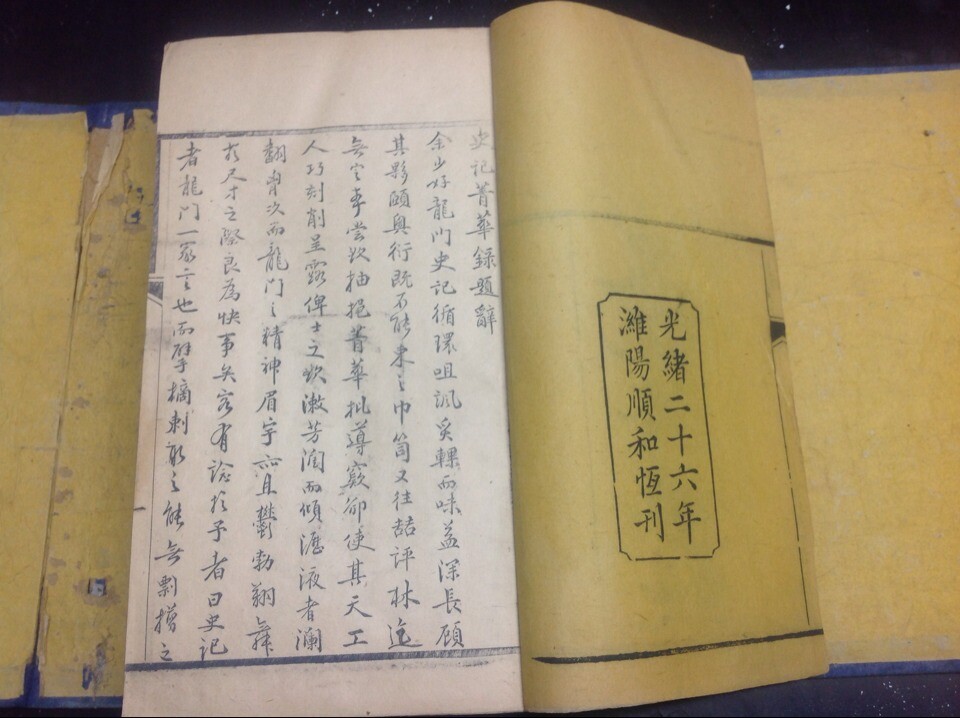 光緒二十六年
濰陽順和恆刊
史記菁華錄題辭
余少好龍門史記循環咀諷炙輠而味益深長顧
其夥頤奧衍既不能束之巾笥又往喆評林迄
無定本嘗欲抽挹菁華批導窾郤使其天工
人巧刻削呈露俾士之欲漱芳潤而傾瀝液者瀾
翻胷次而龍門之精神眉宇亦且鬱勃翔舞
於尺寸之際良為快事矣客有諗於予者曰史記
者龍門一家言也而擘摘刺取之能無剽撏之